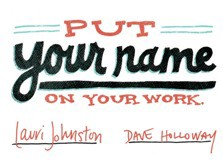 PUT
your name
ON YOUR WORK.
Lauri Johnston DAVE HOLLOWAY